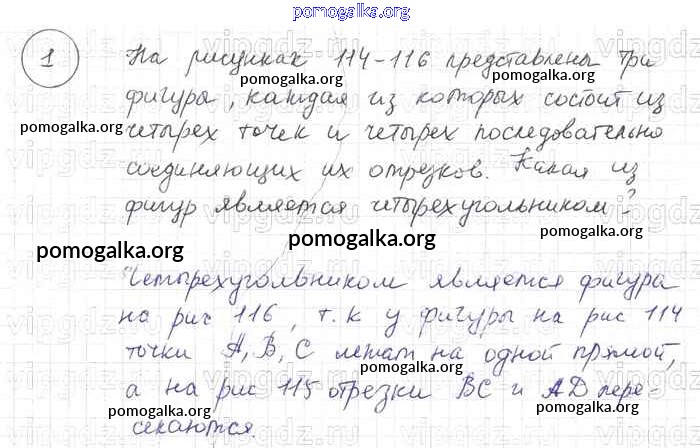 pomogalka.org
1 На рисунках 114-116 представлены три
pomogalka.org
фигуры, каждая из которых состоит из
pomogalka.org
четырех точек и четырех последовательно
соединяющих их отрезков. Какая из
фигур является четырехугольником?
pomogalka.org
pomogalka.org pomogalka.org
Четырехугольником является фигура
на рис 116, т.к у фигуры на рис 114
pomogalka.org pomogalka.org
точки А, В, С лежат на одной прямой,
а на рис 115 отрезки ВС и AD пере-
pomogalka.org pomogalka.org
секаются.